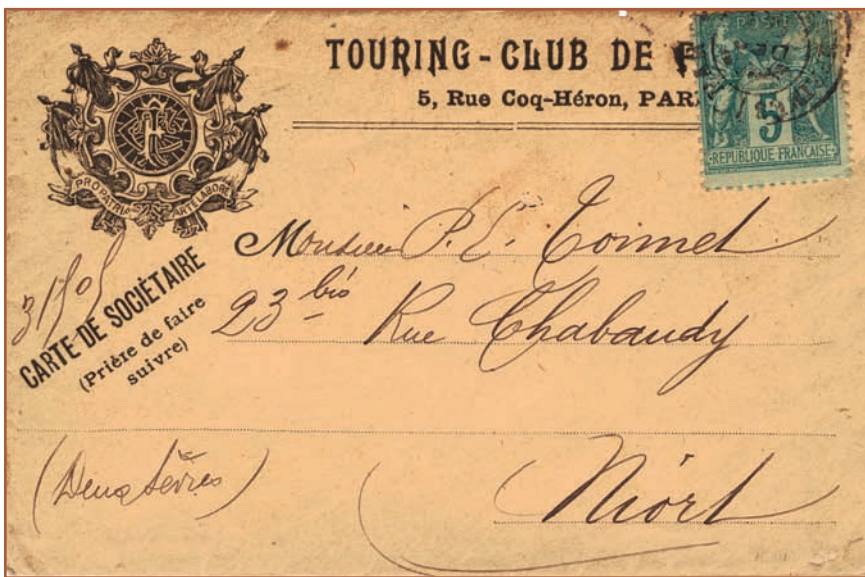 TOURING-CLUB DE F
5, Rue Coq-Héron, PAR
POSTE
5
RÉPUBLIQUE FRANÇAISE
PRO PATRIA ARTE LABORE
CARTE DE SOCIÉTAIRE
(Prière de faire
suivre)
Monsieur P. E.
23 bis Rue Chabaudy
(Deux Sèvres)
Niort